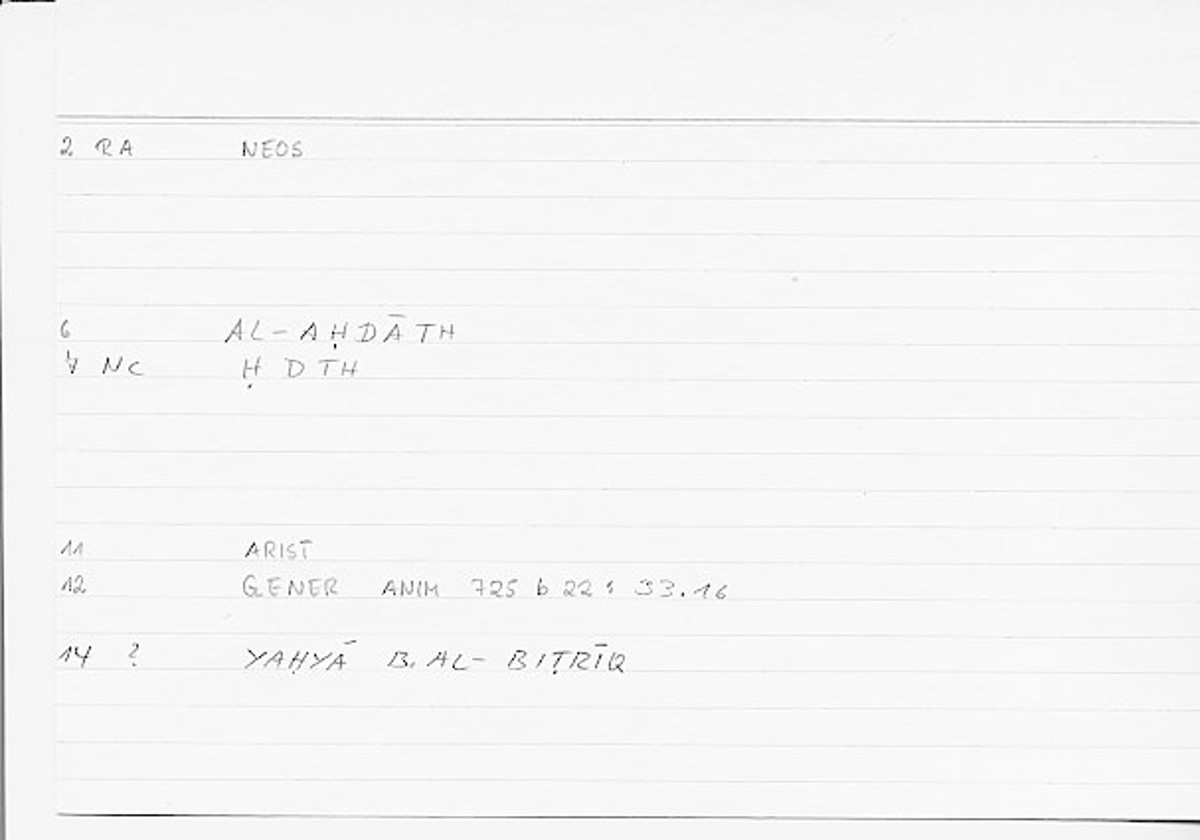 2 RA NEOS
6 AL-AḤDĀTH
7 NC Ḥ D TH
11 ARIST
12 GENER ANIM 725 b 22 : 33.16
14 ? YAḤYĀ B. AL-BIṬRĪQ